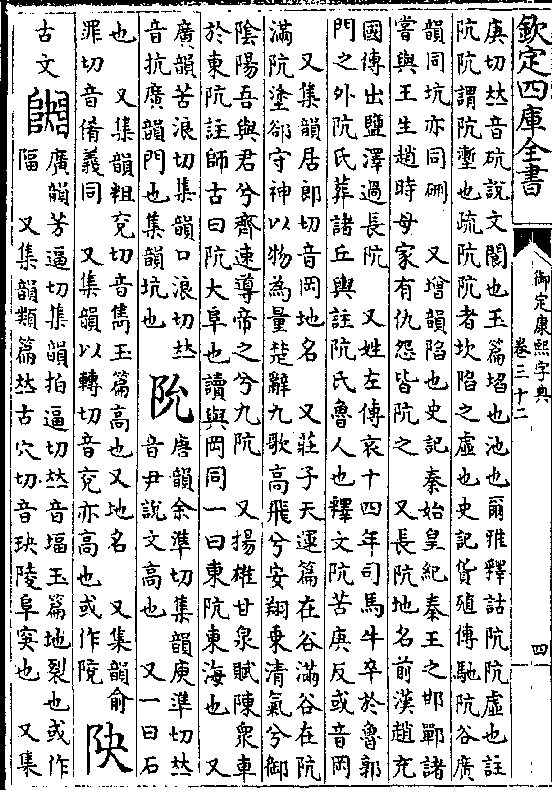 欽定四庫全書
御定康熙字典
卷三十二
四
庚切𠀤音硁說文閬也玉篇埳也池也爾雅釋詁阬阬虛也註
阬阬謂阬壍也疏阬阬者坎陷之虛也史記貨殖傳馳阬谷廣
韻同坑亦同硎 又增韻陷也史記秦始皇紀秦王之邯鄲諸
嘗與王生趙時母家有仇怨皆阬之 又長阬地名前漢趙充
國傳出鹽澤過長阬 又姓左傳哀十四年司馬牛卒於魯郭
門之外阬氏葬諸丘輿註阬氏魯人也釋文阬苦庚反或音岡
又集韻居郎切音岡地名 又莊子天運篇在谷滿谷在阬
滿阬塗郤守神以物為量楚辭九歌高飛兮安翔乘清氣兮御
陰陽吾與君兮齋速導帝之兮九阬 又揚雄甘泉賦陳衆車
於東阬註師古曰阬大阜也讀與岡同一曰東阬東海也 又
廣韻苦浪切集韻口浪切𠀤
音抗廣韻門也集韻坑也
阭
唐韻余準切集韻庾準切𠀤
音尹說文高也 又一曰石
也 又集韻粗兗切音雋玉篇高也又地名 又集韻俞
罪切音倄義同 又集韻以轉切音兗亦高也或作
𨸰
古文
廣韻芳逼切集韻拍逼切𠀤音堛玉篇地裂也或作
又集韻類篇𠀤古穴切音玦陵阜突也 又集